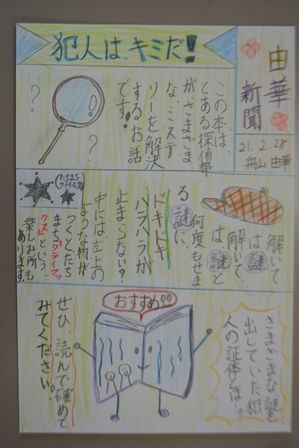 犯人は、キミだ!
由華
新聞
21.2.28
舟山 由華
この本は、
とある探偵部
がさまざま
な、ミステ
リーを解決
するお話
です。
?
?
解いて
は謎
解いて
は謎と
何度もせま
る謎に、
ドキドキ
ハラハラが
止まらない?
中には、左上の
ような物が
たちまちクライマックス
つくとたち
まち、"クライマッ
クス"という、
楽しみ所も
あります。
さまざまな謎を
出していた犯
人の証体とは…。
おすすめ!!
ぜひ、読んで確めて
みてください。